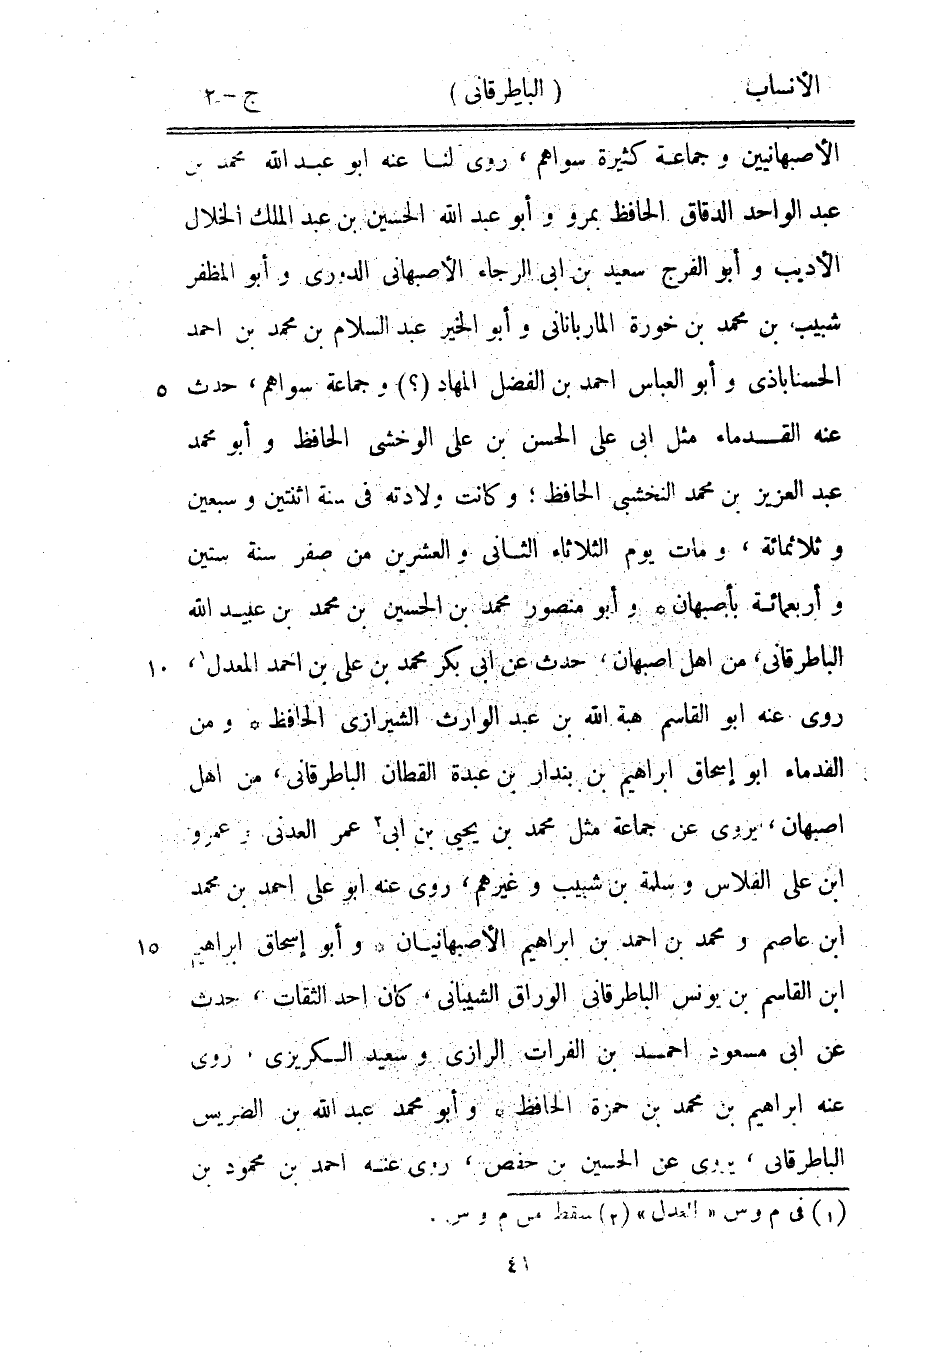 الأنساب ( الباطرقانى ) ج - ٢
الأصبهانيين و جماعة كثيرة سواهم ، روى لنا عنه ابو عبد الله محمد بن
عبد الواحد الدقاق الحافظ بمرو و أبو عبد الله الحسين بن عبد الملك الخلال
الأديب و أبو الفرج سعيد بن ابى الرجاء الأصبهانى الدورى و أبو المظفر
شبيب بن محمد بن خورة الماربانانى و أبو الخير عبد السلام بن محمد بن احمد
الحسناباذى و أبو العباس احمد بن الفضل المهاد (؟) و جماعة سواهم ، حدث ٥
عنه القدماء مثل ابى على الحسن بن على الوخشى الحافظ و أبو محمد
عبد العزيز بن محمد النخشبى الحافظ ؛ و كانت ولادته فى سنة اثنتين و سبعين
و ثلاثمائة ، و مات يوم الثلاثاء الثانى و العشرين من صفر سنة ستين
و أربعمائة بأصبهان * و أبو منصور محمد بن الحسين بن محمد بن عبيد الله
الباطرقانى، من اهل اصبهان ، حدث عن ابى بكر محمد بن على بن احمد المعدل ١، ١٠
روى عنه ابو القاسم هبة الله بن عبد الوارث الشيرازى الحافظ * و من
القدماء ابو إسحاق ابراهيم بن بندار بن عبدة القطان الباطرقانى ، من اهل
اصبهان ، يروى عن جماعة مثل محمد بن يحيى بن ابى ٢ عمر العدنى و عمرو
ابن على الفلاس و سلمة بن شبيب و غيرهم ، روى عنه ابو على احمد بن محمد
ابن عاصم و محمد بن احمد بن ابراهيم الأصبهانيان * و أبو إسحاق ابراهيم ١٥
ابن القاسم بن يونس الباطرقانى الوراق الشيبانى ، كان احد الثقات ، حدث
عن ابى مسعود احمد بن الفرات الرازى و سعيد الكريزى ، روى
عنه ابراهيم بن محمد بن حمزة الحافظ * و أبو محمد عبد الله بن الضريس
الباطرقانى ، يروى عن الحسين بن حفص ، روى عنه احمد بن محمود بن
(١) فى م و س « العدل » (٢) سقط من م و س .
٤١